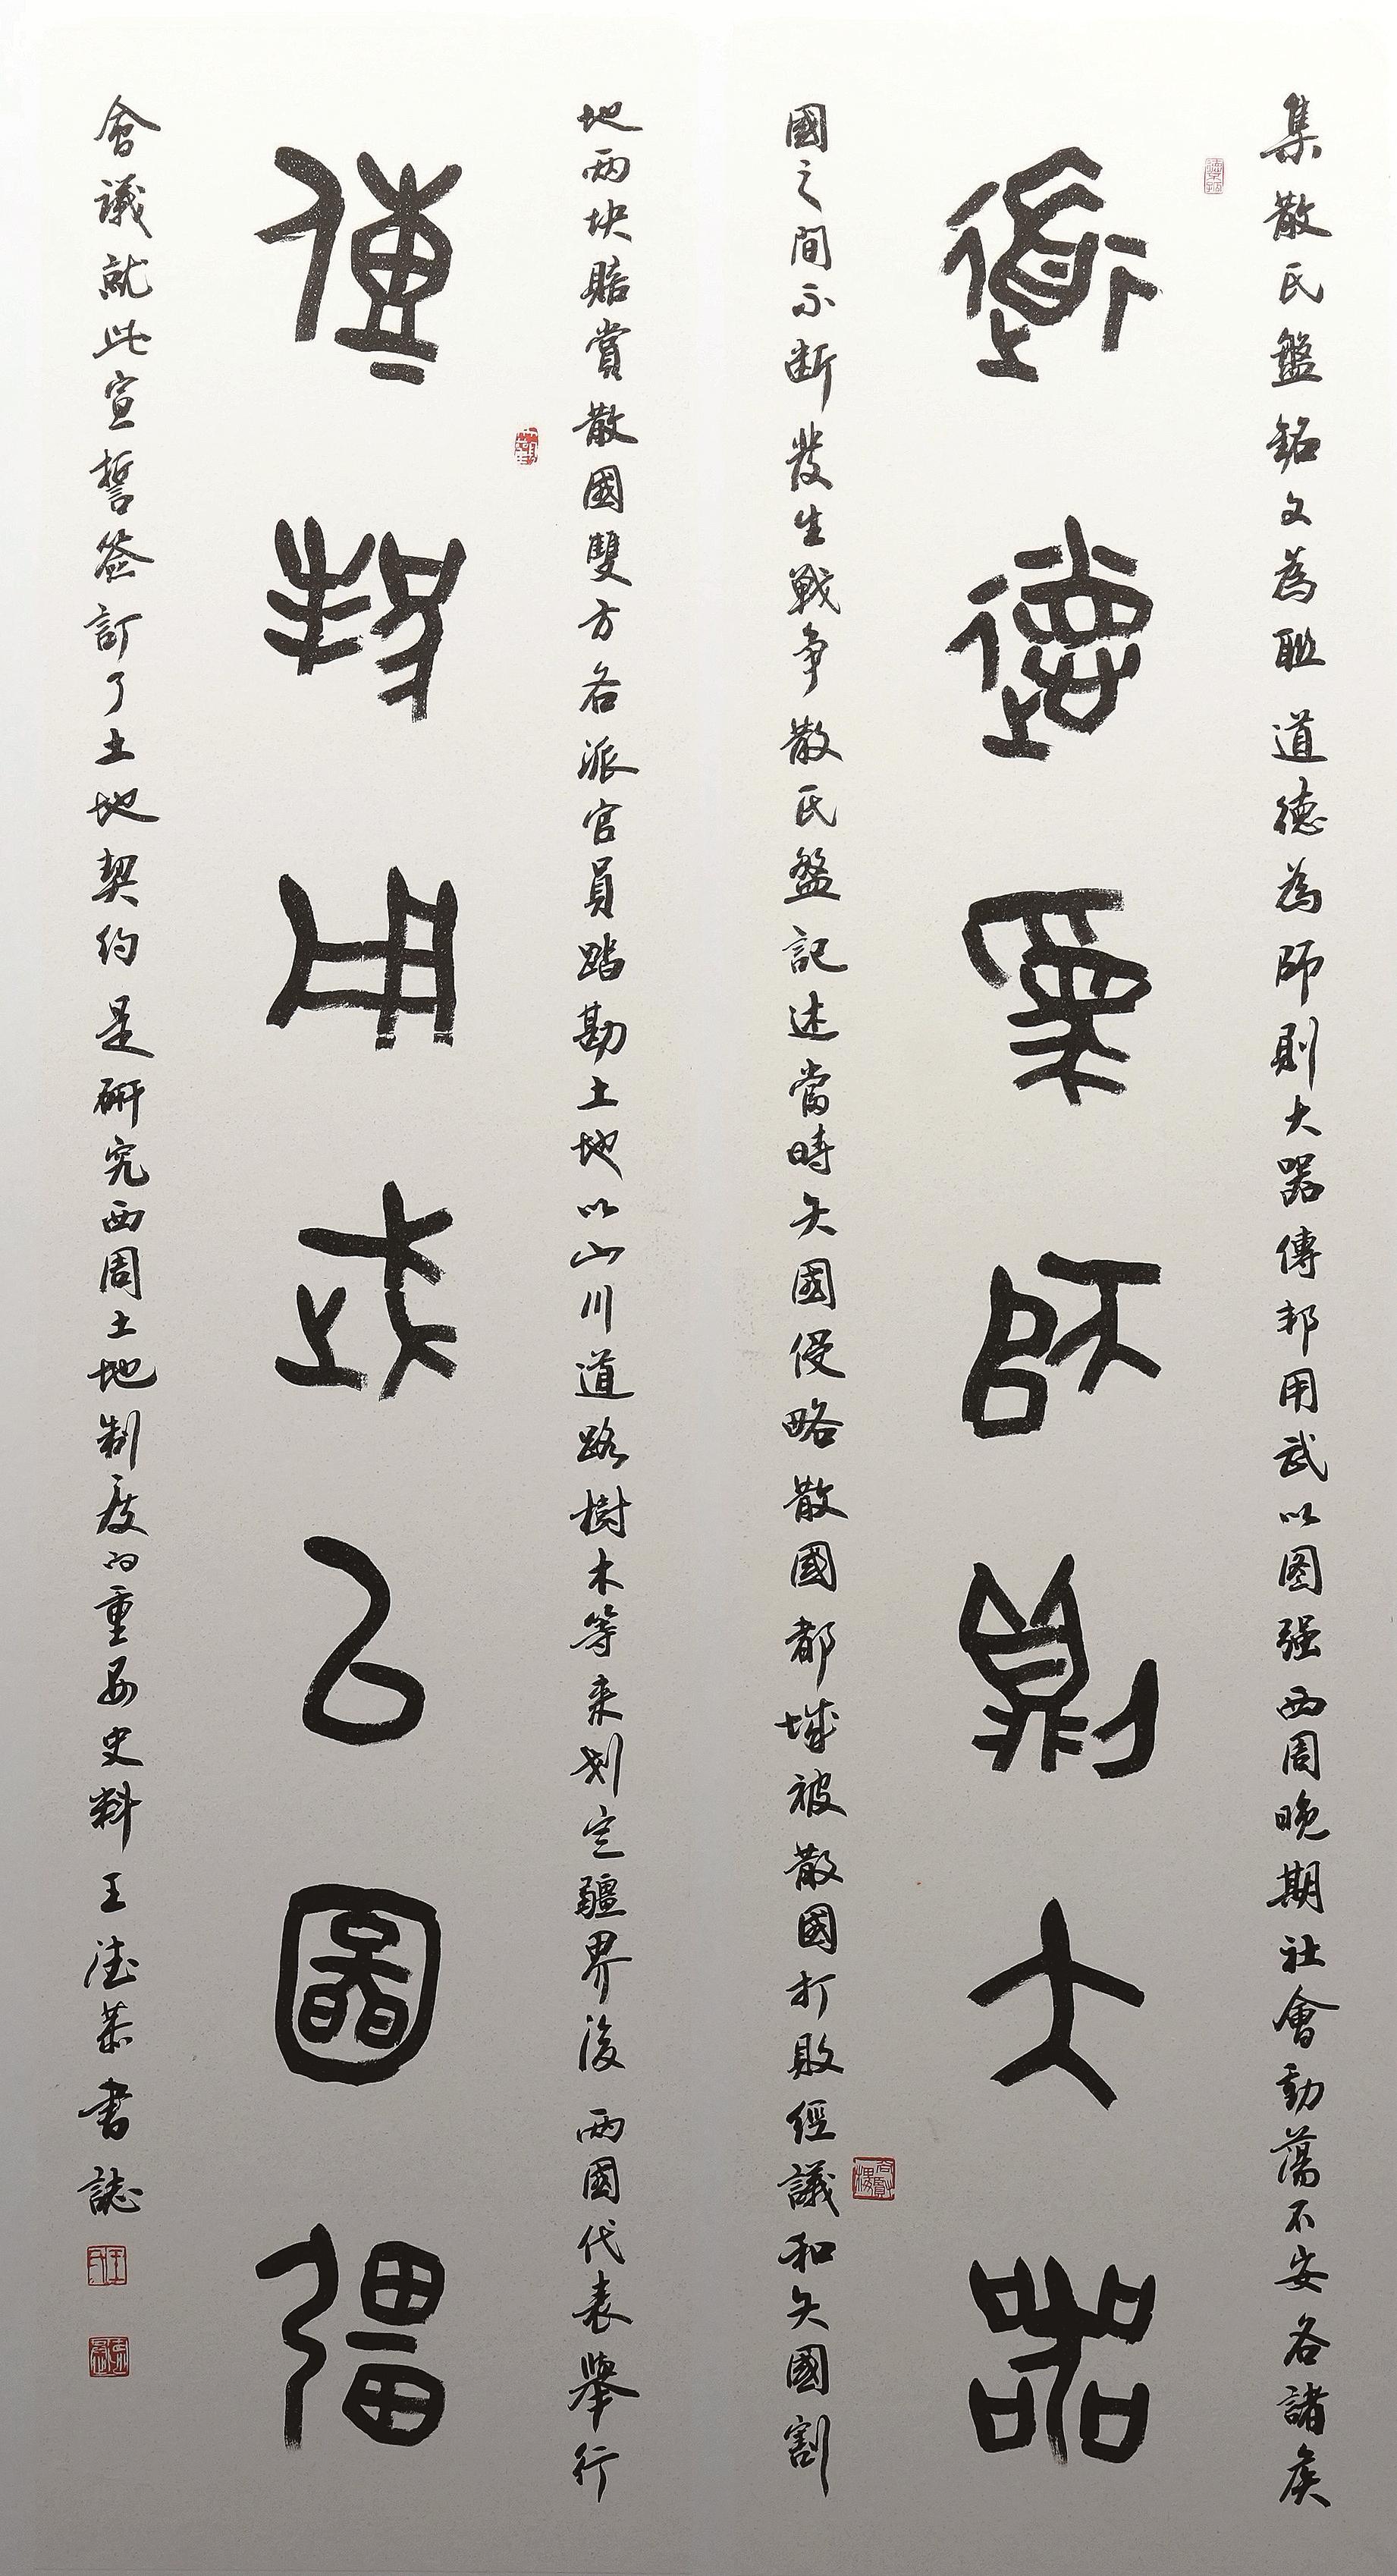 集散氏盤銘文為聯道德為師則大器傳邦用武以图强西周晚期社會動蕩不安各諸侯
道德為師則大器
國之間不断發生戰争散氏盤記述當時夨國侵略散國都城被散國打敗經議和夨國割
地两块賠賞散國雙方各派官員踏勘土地以山川道路樹木等来划定疆界後两國代表舉行
傳邦用武以圖彊
會議就此宣誓签訂了土地契约是研究西周土地制度的重要史料王德恭書誌